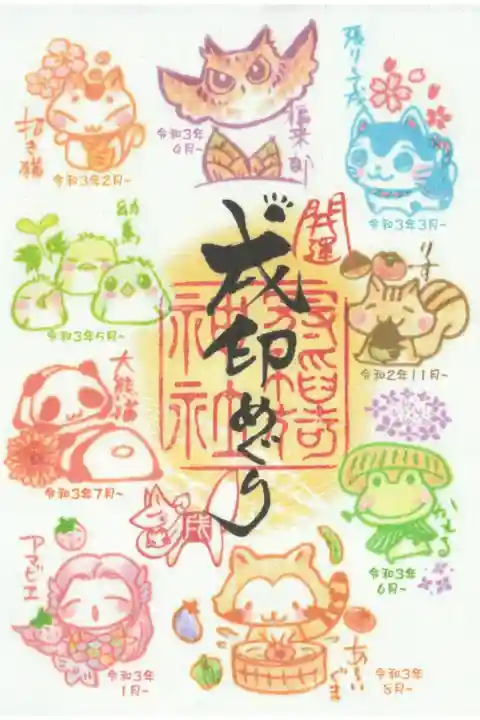 招き猫
令和3年2月~
令和3年
4月~
福来郎
張り子戌
令和3年3月~
開運
戌印めぐり
神社
令和3年5月~
りす
令和2年11月~
大熊猫
令和3年7月~
かえる
令和3年
6月~
戌
アマビエ
令和3年
1月~
あらいぐま
令和3年
8月~